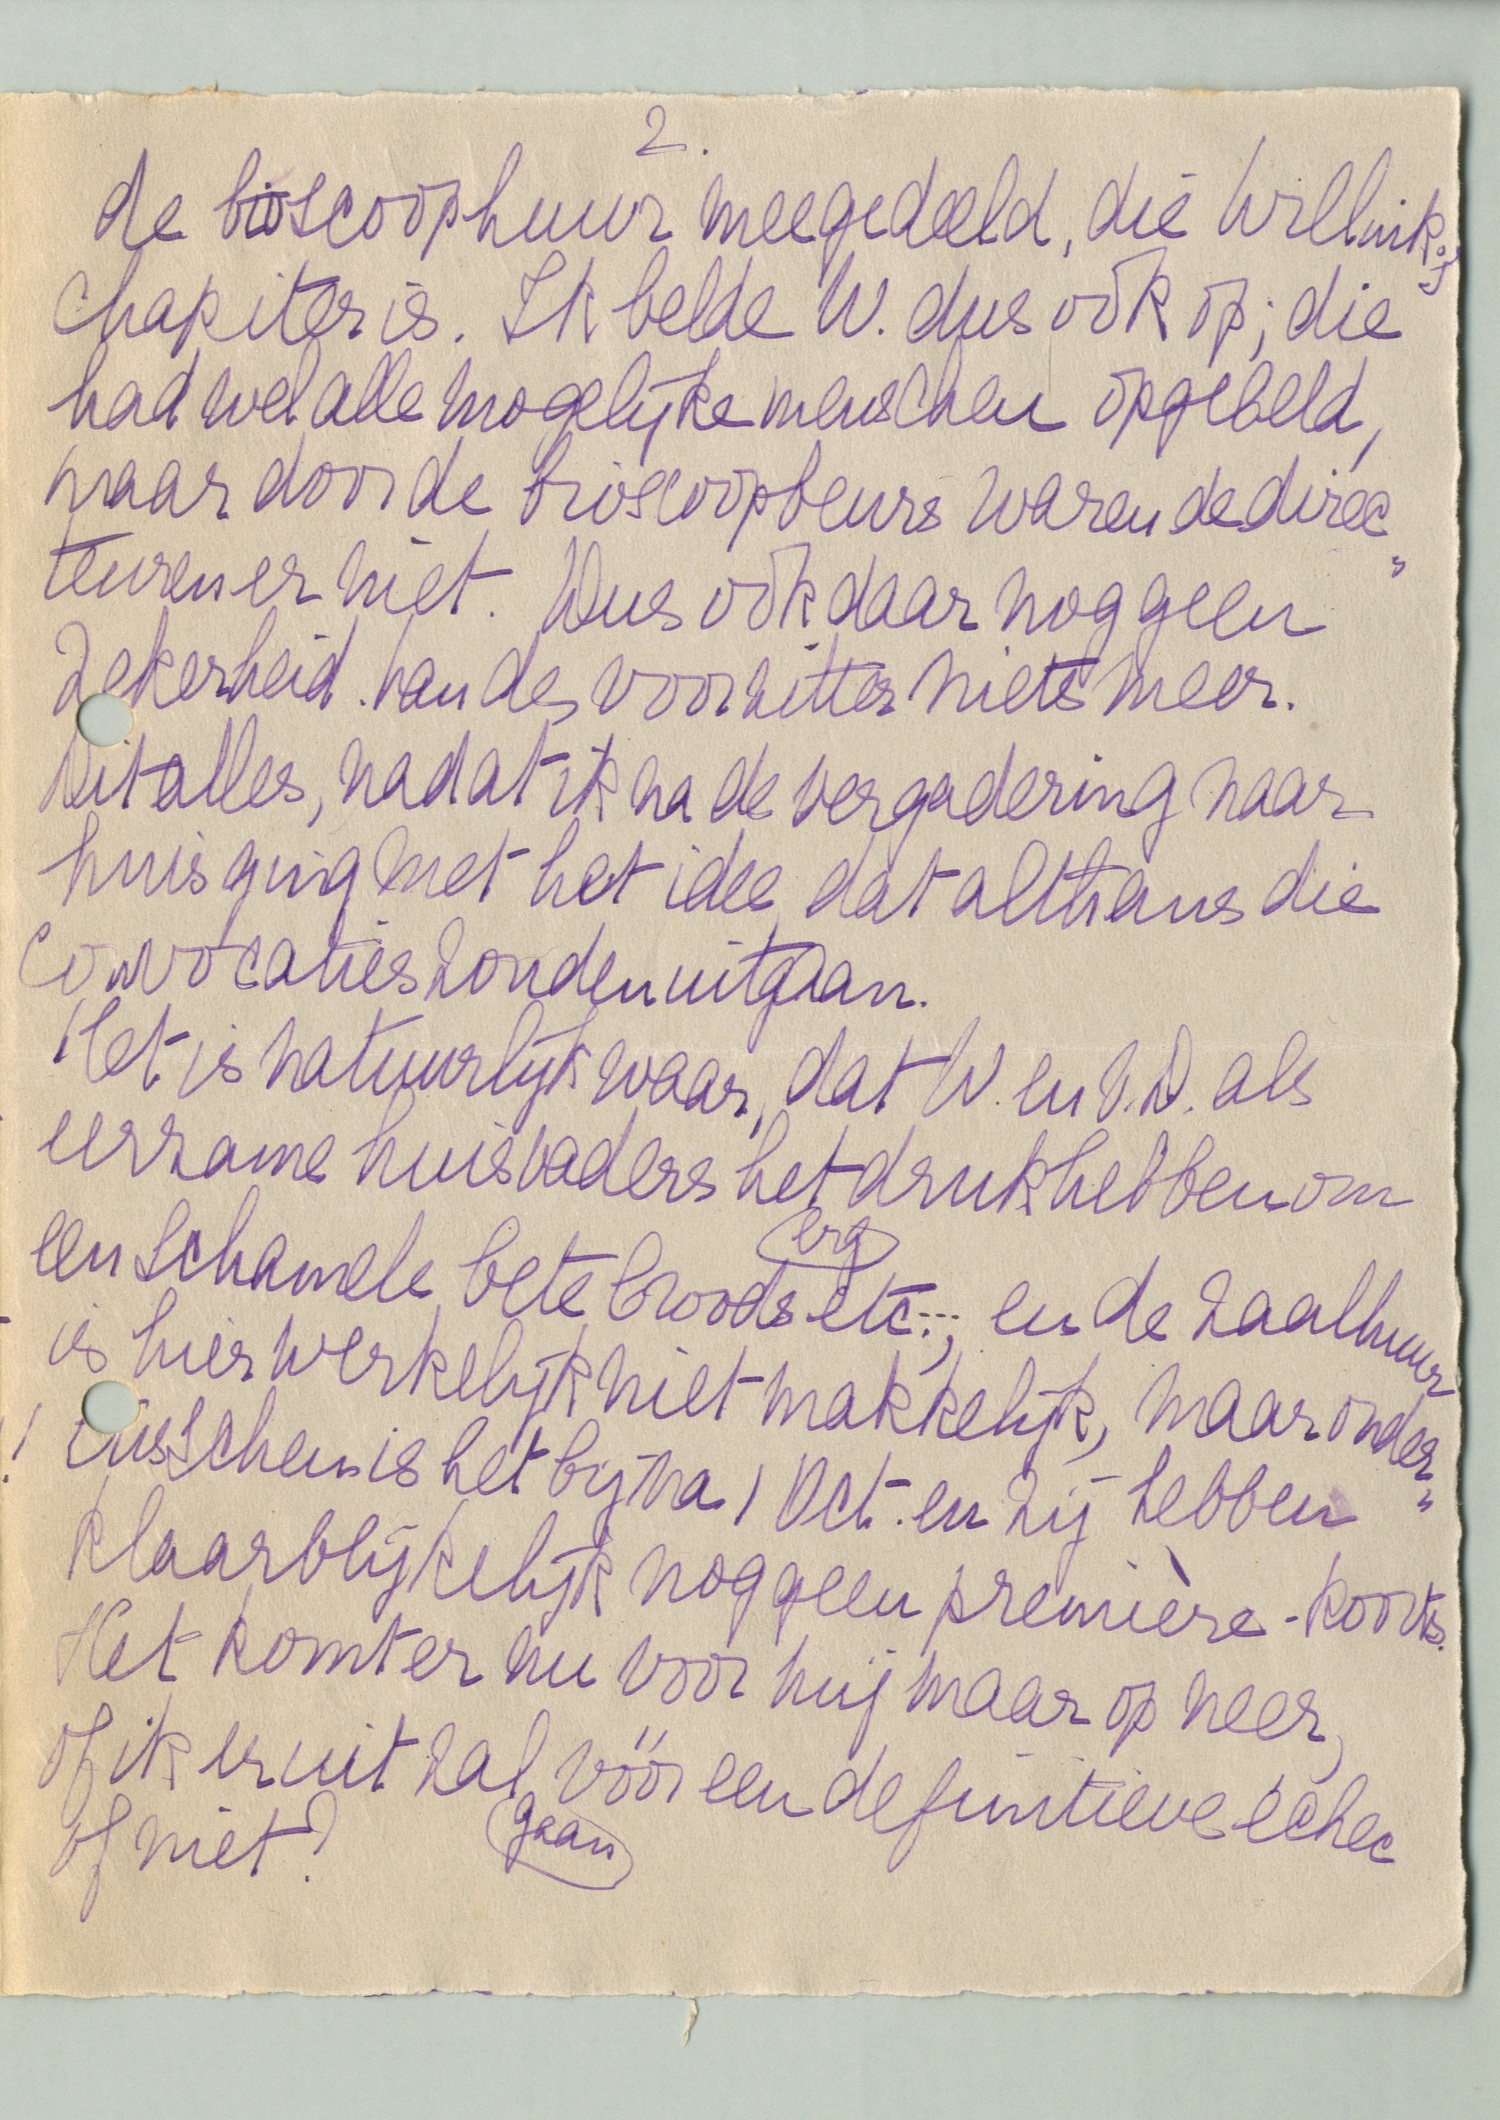 2.
de bioscoophuur meegedeeld, die Willink's
chapiter is. Ik belde W. dus ook op; die
had wel alle mogelijke menschen opgebeld,
maar door de bioscoopbeurs waren de direc„
teuren er niet. Dus ook daar nog geen
zekerheid. Van des voorzitter niets meer.
Dit alles, nadat ik na de vergadering naar
huis ging met het idee, dat althans die
convocaties zouden uitgaan.
Het is natuurlijk waar, dat W. en v.D. als
eerzame huisvaders het druk hebben om
een schamele bete broods etc..., en de zaalhuur
erg
is hier werkelijk niet makkelijk, maar onder„
! tusschen is het bijna 1 Oct. en zij hebben
klaarblijkelijk nog geen première-koorts.
Het komt er nu voor mij maar op neer,
of ik er uit zal vóór een definitieve echec
gaan
of niet?